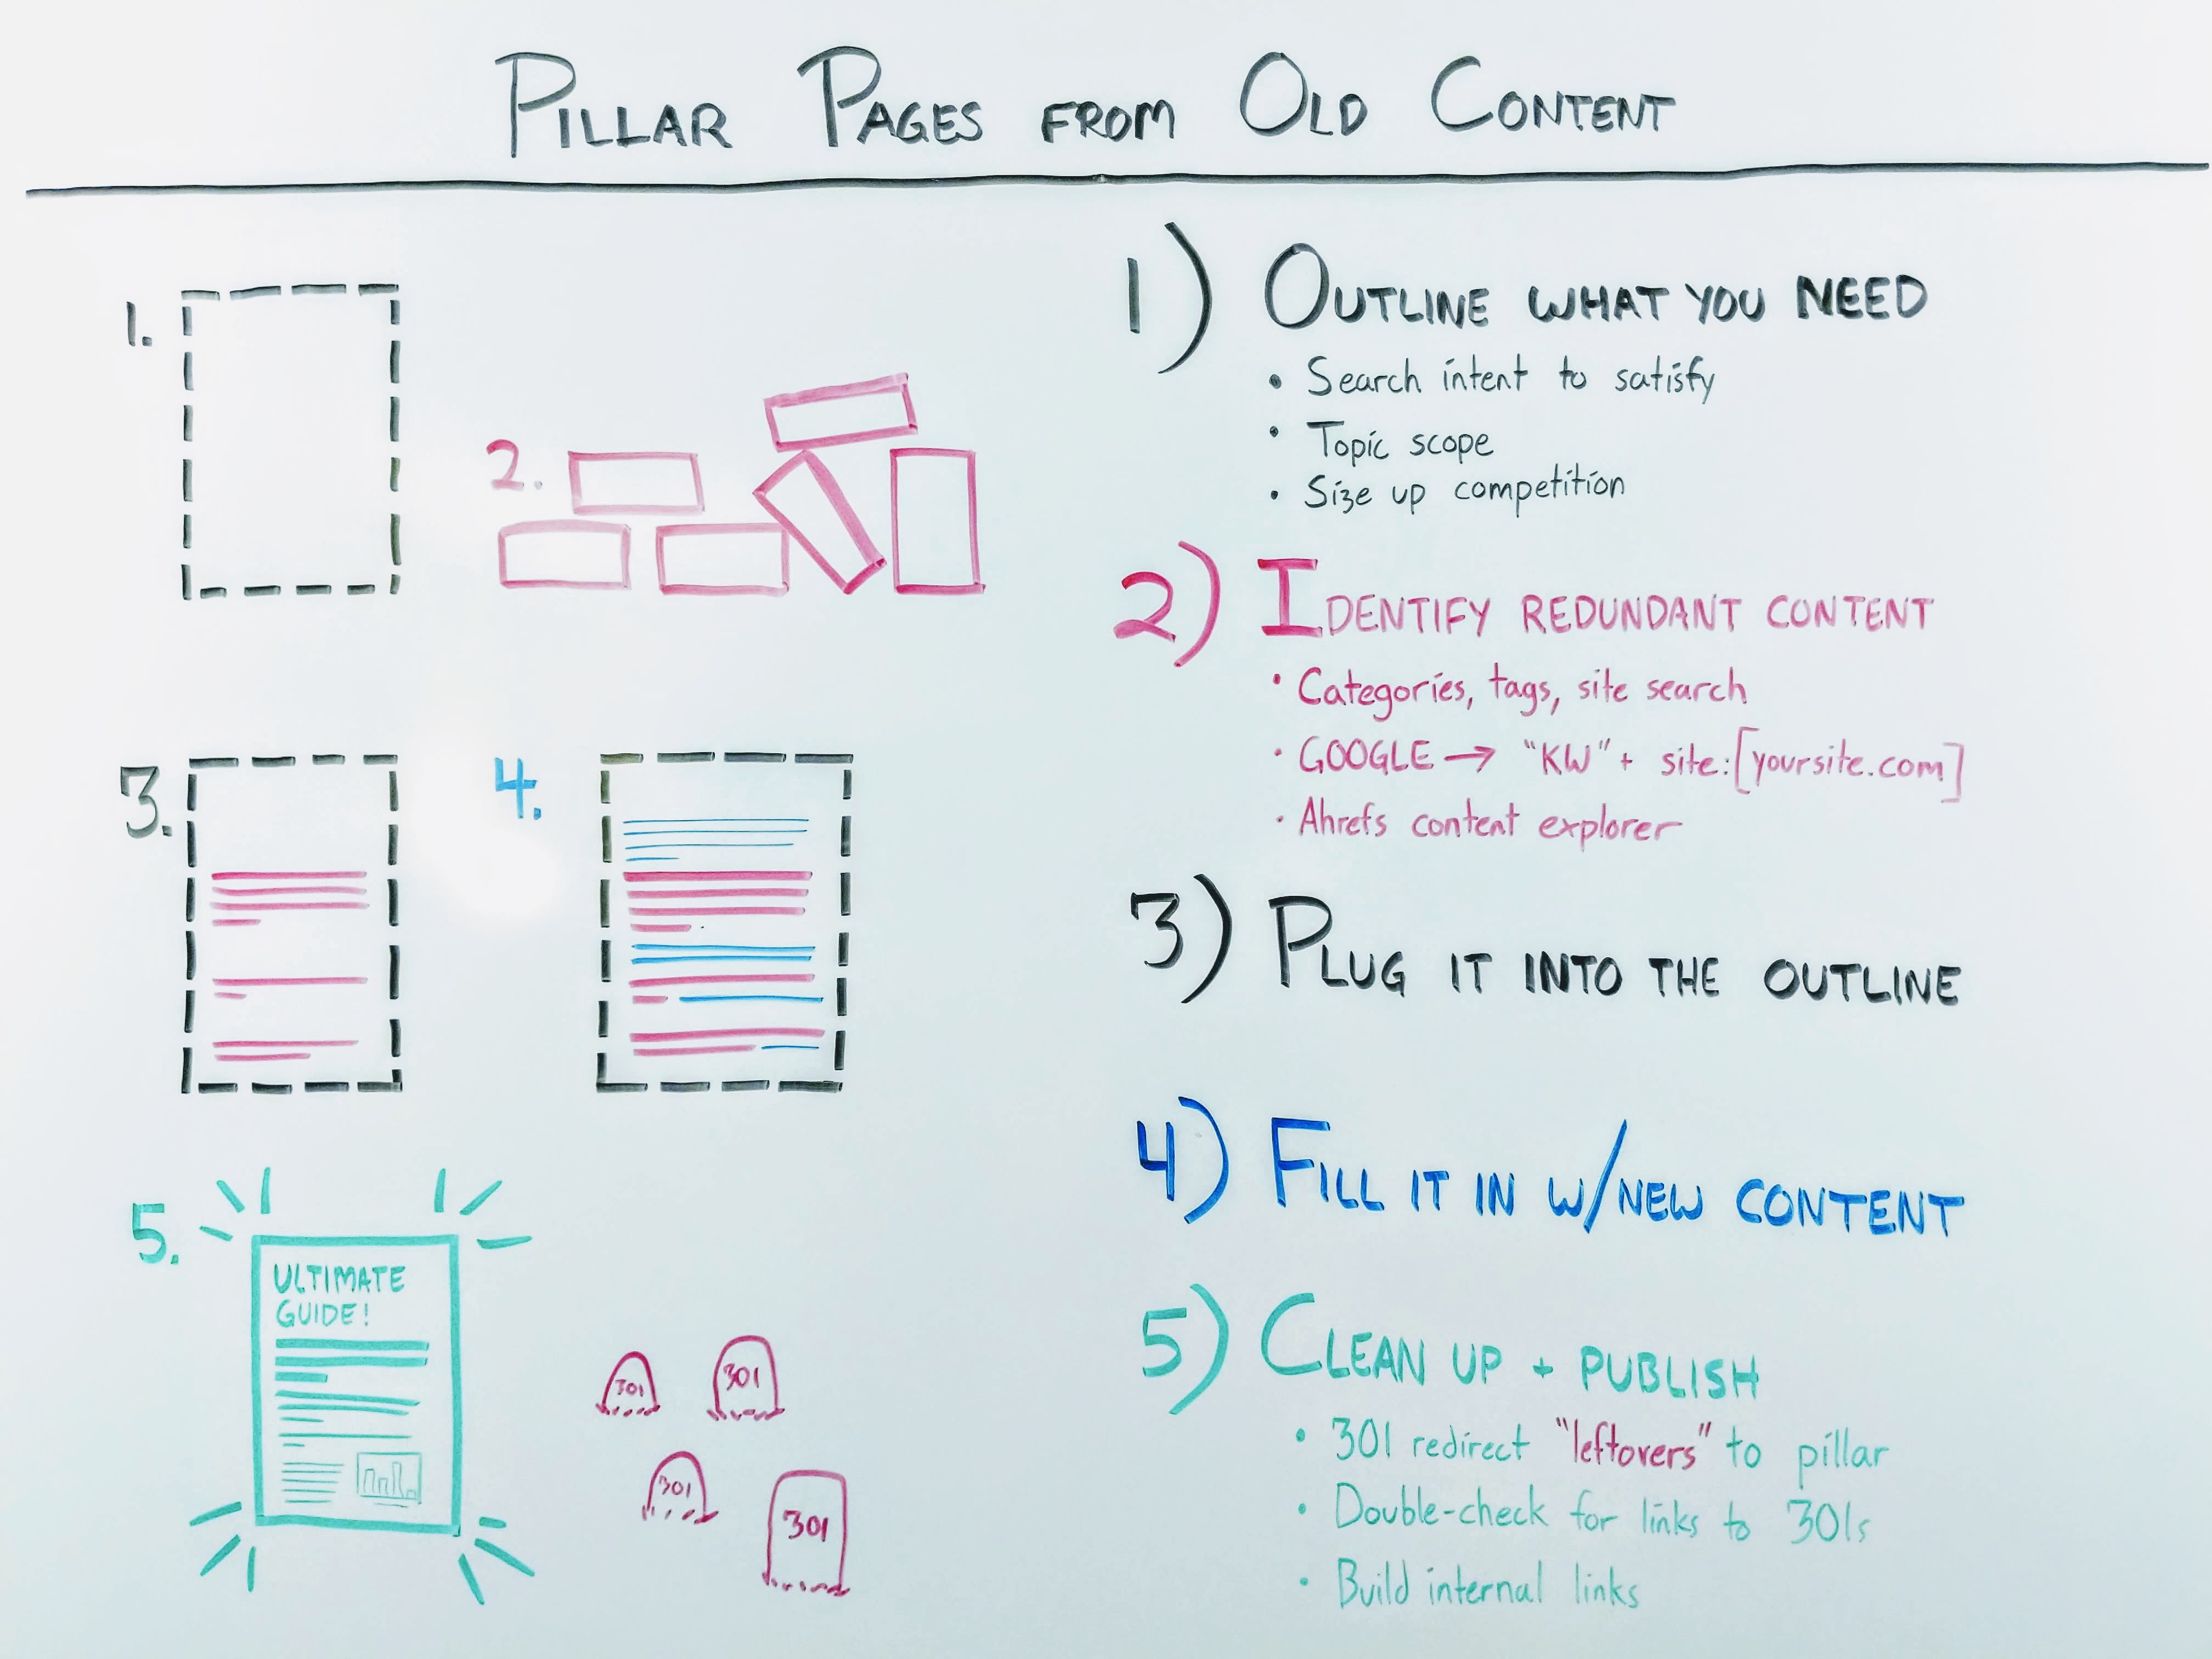 PILLAR PAGES FROM OLD CONTENT
1.
2.
3.
4.
5.
ULTIMATE
GUIDE!
301
301
301
301
1) OUTLINE WHAT YOU NEED
• Search intent to satisfy
• Topic scope
• Size up competition
2) IDENTIFY REDUNDANT CONTENT
• Categories, tags, site search
• GOOGLE → "KW" + site:[yoursite.com]
• Ahrefs content explorer
3) PLUG IT INTO THE OUTLINE
4) FILL IT IN W/NEW CONTENT
5) CLEAN UP + PUBLISH
• 301 redirect "leftovers" to pillar
• Double-check for links to 301s
• Build internal links